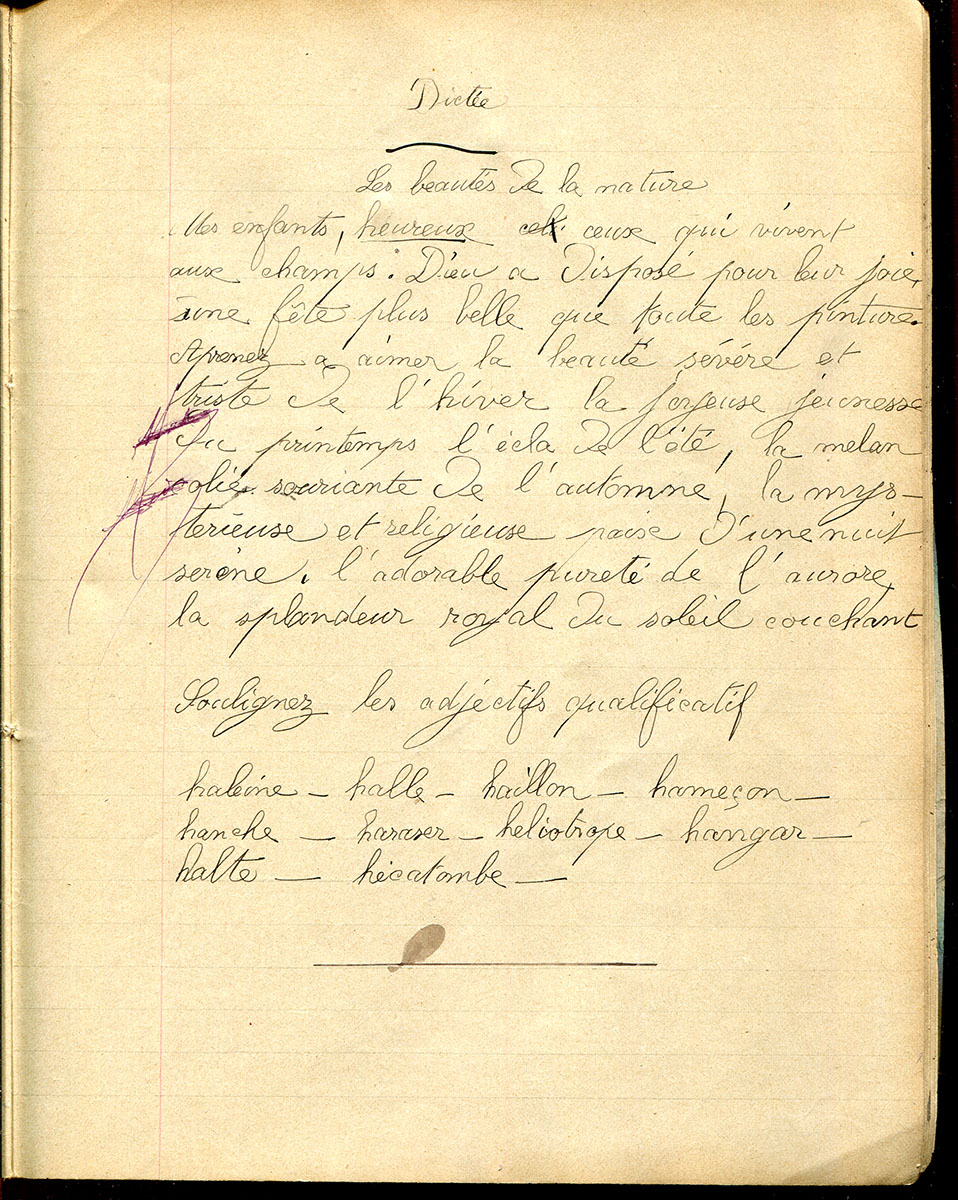 Dictée
Les beautés de la nature
Mes enfants, heureux ceux qui vivent
aux champs. Dieu a disposé pour leur joie,
une fête plus belle que toute les pinture.
Aprenez a aimer la beauté sévére et
triste de l'hiver la joyeuse jeunesse
du printemps l'écla de l'été, la mélan
colie souriante de l'automne, la mys-
terieuse et religieuse paise d'une nuit
seréne, l'adorable pureté de l'aurore,
la splandeur royal du soleil couchant
Soulignez les adjéctifs qualificatif
haleine – halle – haillon – hameçon –
hanche – haraser – heliotrope – hangar –
halte – hécatombe –